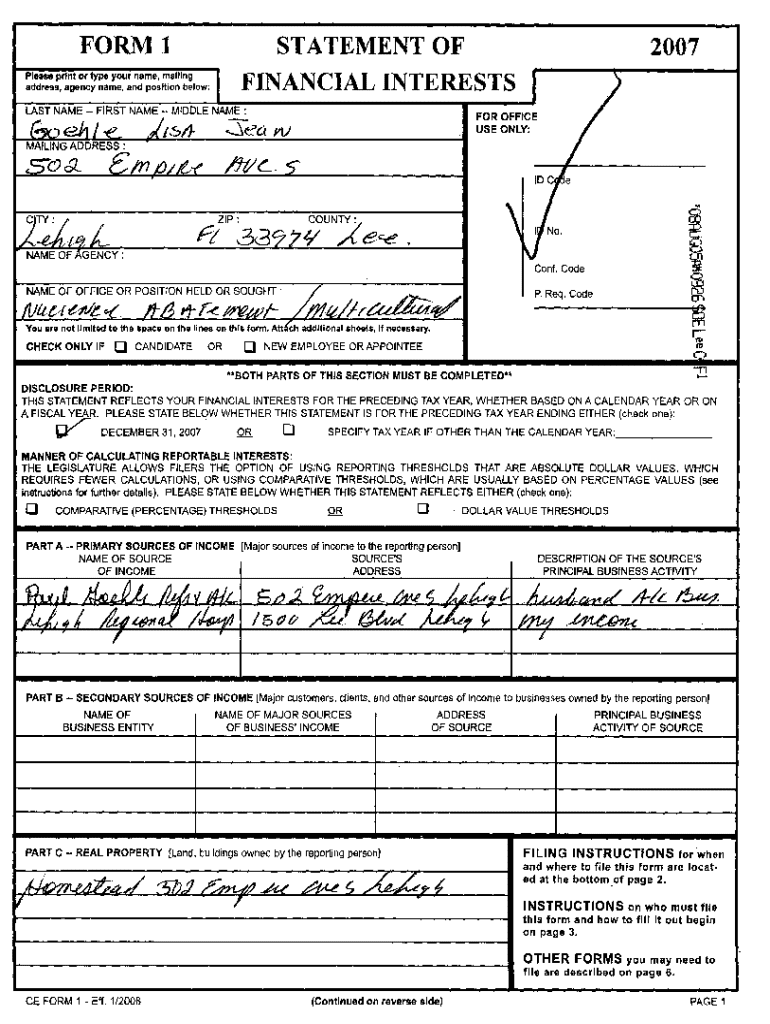 FORM 1 STATEMENT OF 2007
FINANCIAL INTERESTS
Please print or type your name, mailing
address, agency name, and position below:
LAST NAME -- FIRST NAME -- MIDDLE NAME :
Goehle LISA Jean
MAILING ADDRESS :
502 Empire AVE. S
CITY : ZIP : COUNTY :
Lehigh Fl 33974 Lee.
NAME OF AGENCY :
NAME OF OFFICE OR POSITION HELD OR SOUGHT :
ABATement /Multicultural
You are not limited to the space on the lines on this form. Attach additional sheets, if necessary.
CHECK ONLY IF CANDIDATE OR NEW EMPLOYEE OR APPOINTEE
FOR OFFICE
USE ONLY:
ID Code
ID No.
Conf. Code
P. Req. Code
**BOTH PARTS OF THIS SECTION MUST BE COMPLETED**
DISCLOSURE PERIOD:
THIS STATEMENT REFLECTS YOUR FINANCIAL INTERESTS FOR THE PRECEDING TAX YEAR, WHETHER BASED ON A CALENDAR YEAR OR ON
A FISCAL YEAR. PLEASE STATE BELOW WHETHER THIS STATEMENT IS FOR THE PRECEDING TAX YEAR ENDING EITHER (check one):
DECEMBER 31, 2007 OR SPECIFY TAX YEAR IF OTHER THAN THE CALENDAR YEAR:
MANNER OF CALCULATING REPORTABLE INTERESTS:
THE LEGISLATURE ALLOWS FILERS THE OPTION OF USING REPORTING THRESHOLDS THAT ARE ABSOLUTE DOLLAR VALUES, WHICH
REQUIRES FEWER CALCULATIONS, OR USING COMPARATIVE THRESHOLDS, WHICH ARE USUALLY BASED ON PERCENTAGE VALUES (see
instructions for further details). PLEASE STATE BELOW WHETHER THIS STATEMENT REFLECTS EITHER (check one):
COMPARATIVE (PERCENTAGE) THRESHOLDS OR DOLLAR VALUE THRESHOLDS
PART A -- PRIMARY SOURCES OF INCOME [Major sources of income to the reporting person]
NAME OF SOURCE SOURCE'S DESCRIPTION OF THE SOURCE'S
OF INCOME ADDRESS PRINCIPAL BUSINESS ACTIVITY
Goehle Refrv A/C 502 Empire ave S Lehigh husband A/C Bus.
Lehigh Regional Hosp 1500 Lee Blvd Lehigh my income
PART B -- SECONDARY SOURCES OF INCOME [Major customers, clients, and other sources of income to businesses owned by the reporting person]
NAME OF NAME OF MAJOR SOURCES ADDRESS PRINCIPAL BUSINESS
BUSINESS ENTITY OF BUSINESS' INCOME OF SOURCE ACTIVITY OF SOURCE
PART C -- REAL PROPERTY [Land, buildings owned by the reporting person]
Homestead 502 Empire ave S Lehigh
FILING INSTRUCTIONS for when
and where to file this form are locat-
ed at the bottom of page 2.
INSTRUCTIONS on who must file
this form and how to fill it out begin
on page 3.
OTHER FORMS you may need to
file are described on page 6.
CE FORM 1 - Eff. 1/2008 (Continued on reverse side) PAGE 1